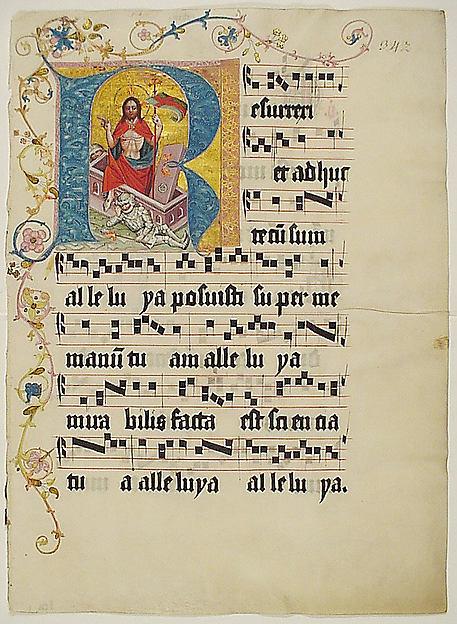 342
R
esurrexi
et adhuc
tecū sum
al le lu ya posuisti su per me
manū tu am alle lu ya
mira bilis facta est sci en cia
tu a alle luya al le lu ya.